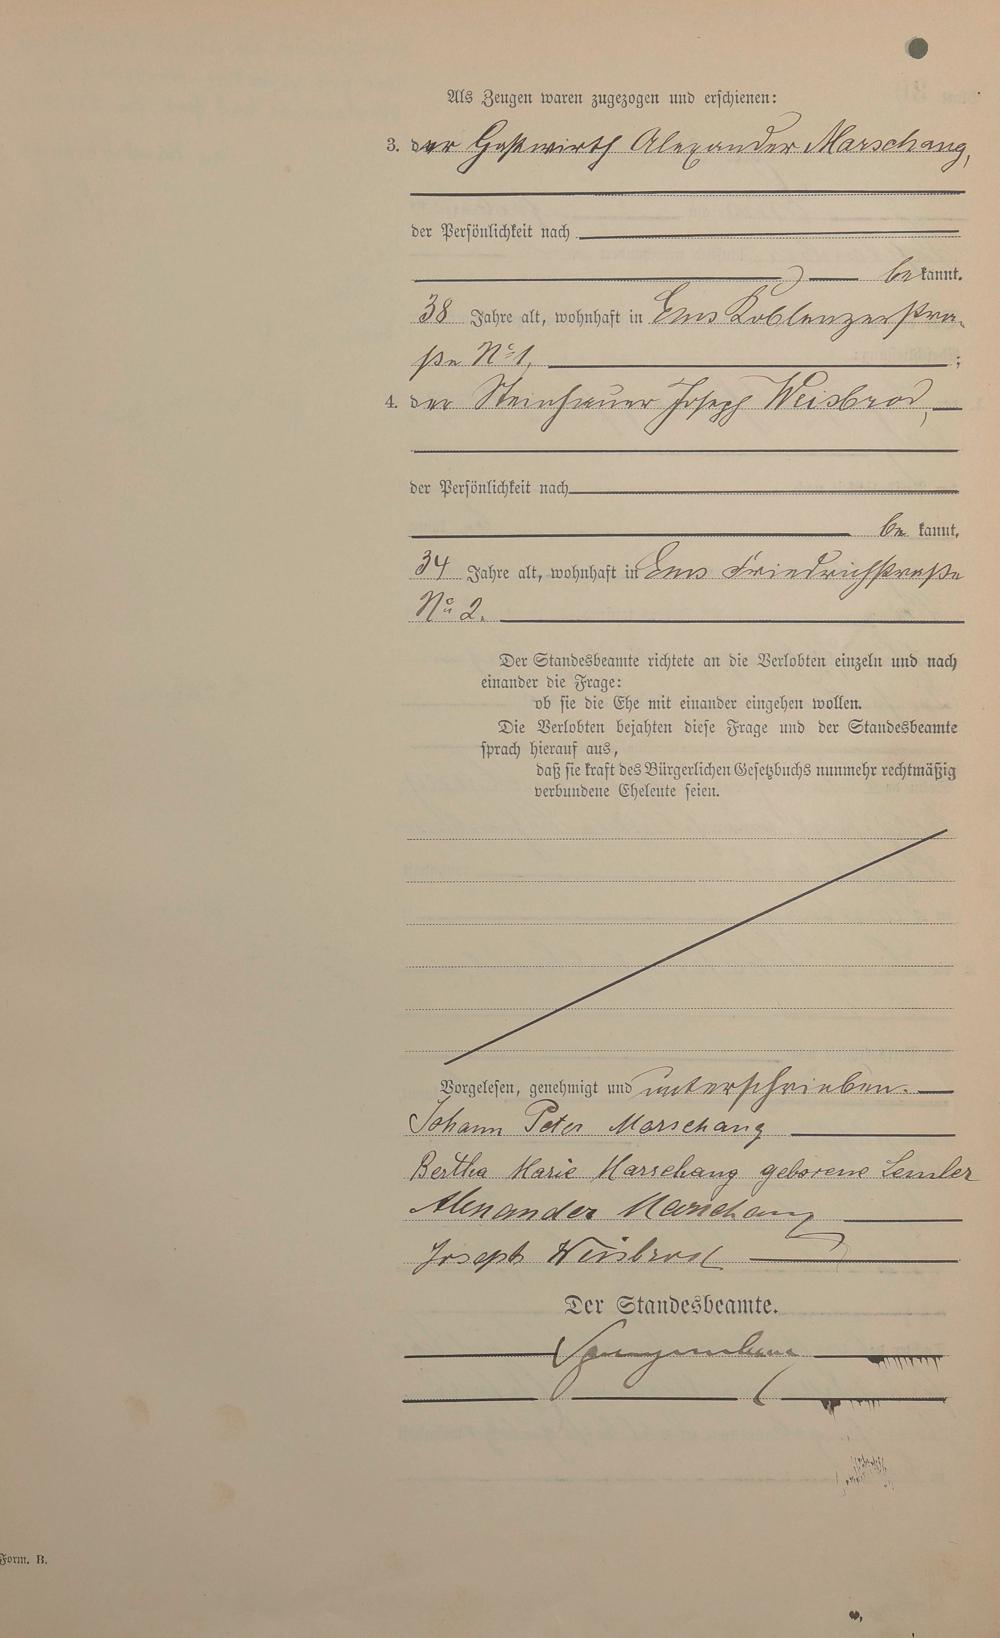 Als Zeugen waren zugezogen und erschienen:
3. der Gastwirth Alexander Marschang,
der Persönlichkeit nach
be kannt,
38 Jahre alt, wohnhaft in Ems Koblenzerstra-
ße No 1, ;
4. der Steinhauer Joseph Weisbrod,
der Persönlichkeit nach
be kannt,
34 Jahre alt, wohnhaft in Ems Friedrichstraße
No 2.
Der Standesbeamte richtete an die Verlobten einzeln und nach
einander die Frage:
ob sie die Ehe mit einander eingehen wollen.
Die Verlobten bejahten diese Frage und der Standesbeamte
sprach hierauf aus,
daß sie kraft des Bürgerlichen Gesetzbuchs nunmehr rechtmäßig
verbundene Eheleute seien.
Vorgelesen, genehmigt und unterschrieben.
Johann Peter Marschang
Bertha Marie Marschang geborene Lemler
Alexander Marschang
Joseph Weisbrod
Der Standesbeamte.
Form. B.